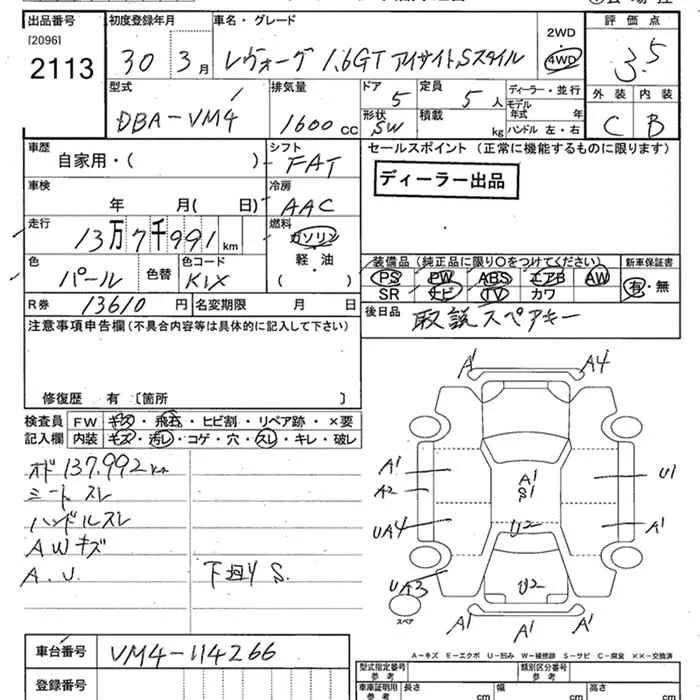 出品番号 初度登録年月 車名・グレード 2WD 評価点
[2096] 2113 30年 3月 レヴォーグ 1.6GT アイサイトSスタイル 4WD 3.5
型式 排気量 ドア 定員 ディーラー・並行 外装 内装
DBA-VM4 1600cc 5 5人 モデル年式 年
形状 SW 積載 kg ハンドル 左・右 C B
車歴 シフト セールスポイント (正常に機能するものに限ります)
自家用・( ) FAT
ディーラー出品
車検 冷房
年 月( 日) AAC
走行 燃料
13万7千991km ガソリン
軽・油
( )
色 色替 色コード
パール KIX
装備品 (純正品に限り○をつけてください) 新車保証書
PS PW ABS エアB AW 有・無
SR ナビ TV カワ
R券 13610円 名変期限 月 日
後日品 取説 スペアキー
注意事項申告欄 (不具合内容等は具体的に記入して下さい)
修復歴 有 [箇所 ]
検査員 FW キズ・飛石・ヒビ割・リペア跡・×要
記入欄 内装 キズ・汚レ・コゲ・穴・スレ・キレ・破レ
オド 137,992km
シート スレ
ハンドルスレ
AWキズ
A.U. 下廻り S.
A1 A4
A1 A1 S1 U1
A2
UA4 U2 A1
UA3 U2
スペア
A1 A1 A1
A-キズ E-エクボ U-凹み W-補修跡 S-サビ C-腐食 ××-交換済
車台番号 VM4-114266
登録番号
型式指定番号 参考 類別区分番号 参考
車庫証明用 参考 長さ cm 幅 cm 高さ cm